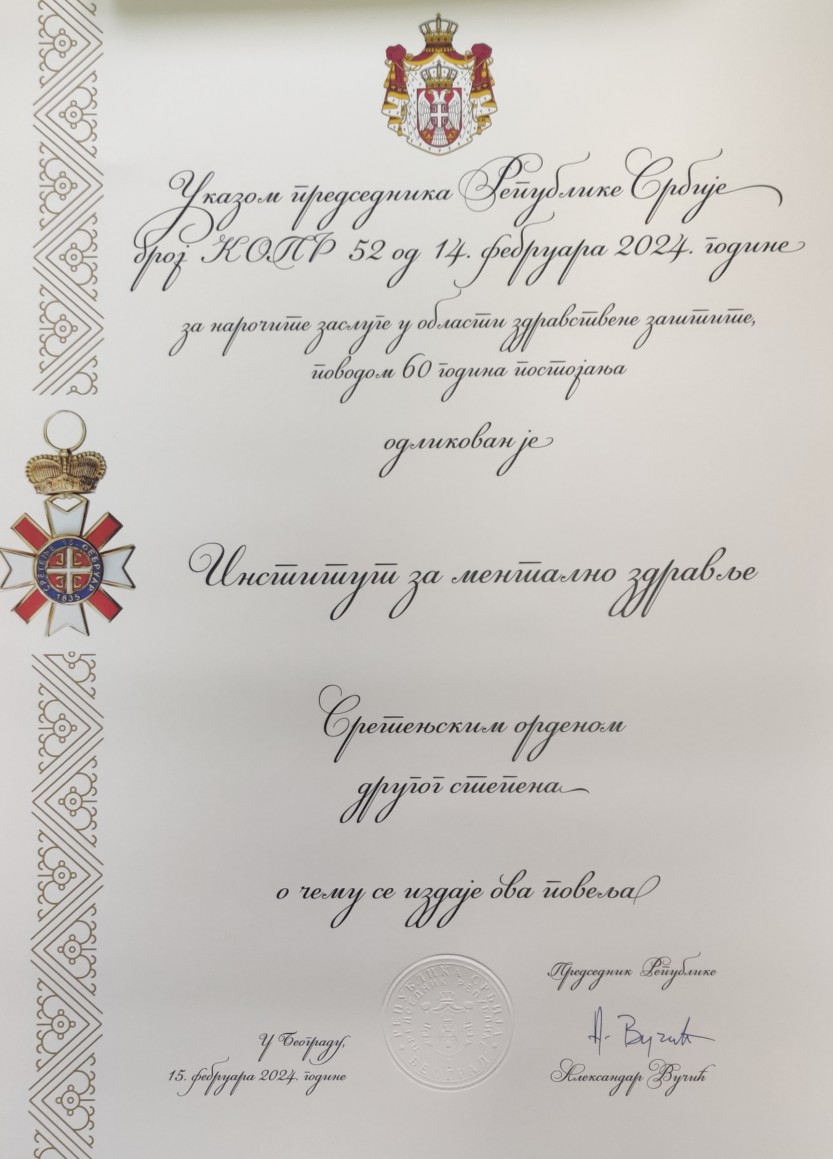 Указом председника Републике Србије
број КОПР 52 од 14. фебруара 2024. године
за нарочите заслуге у области здравствене заштите,
поводом 60 година постојања
одликован је
Институт за ментално здравље
Сретењским орденом
другог степена
о чему се издаје ова повеља
Председник Републике
А. Вучић
Александар Вучић
У Београду,
15. фебруара 2024. године
РЕПУБЛИКА СРБИЈА
ПРЕДСЕДНИК РЕПУБЛИКЕ
БЕОГРАД
СРЕТЕЊЕ 15. ФЕБРУАР
1835